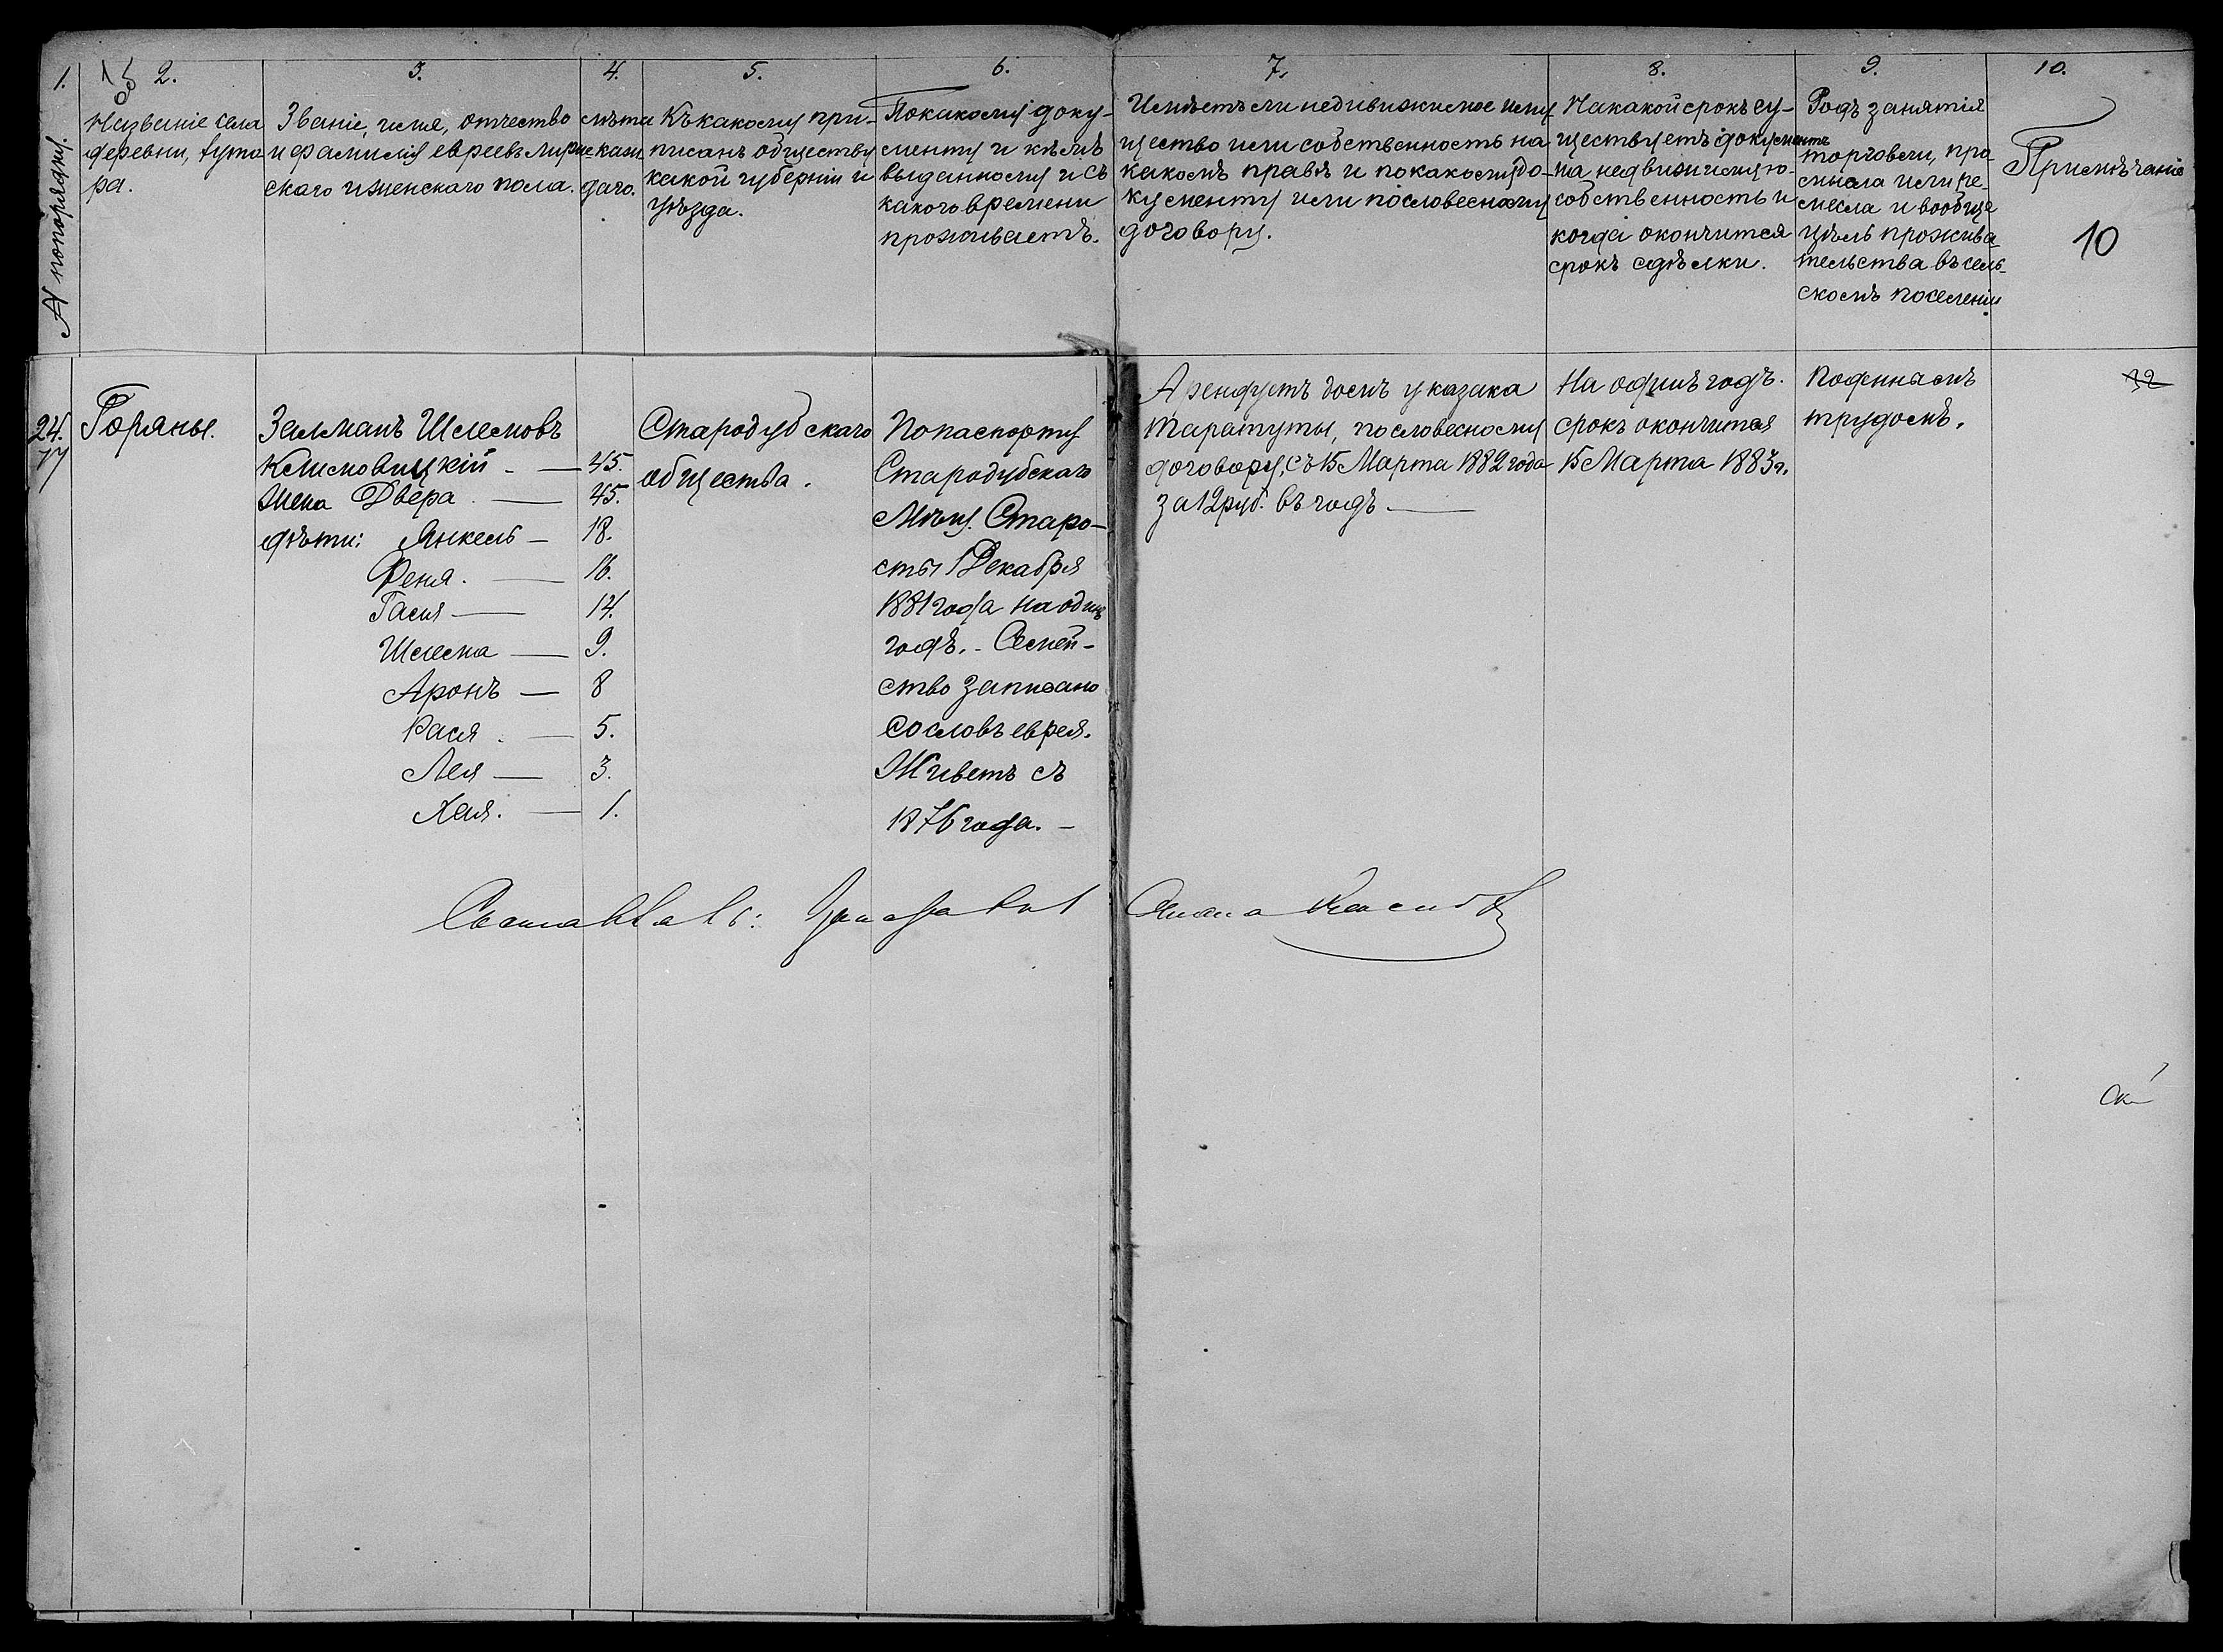 1.
2.
3.
4.
5.
6.
7.
8.
9.
10.
№ попорядку.
Названіе села
деревни, хуто
ра.
Званіе, имя, отчество
и фамилія евреевъ мужe
скаго и женскаго пола.
лѣта
кажд
даго.
Къ какому при-
писанъ обществу
какой губерніи и
уѣзда.
По какому доку-
менту и кѣмъ
выданному и съ
какого времени
проживаетъ.
Имѣетъ ли недвижимое иму
щество или собственность на
какомъ правѣ и по какому до-
кументу или по словесному
договору.
На какой срокъ су-
ществуетъ документъ
на недвижимую
собственность и
когда окончится
срокъ сдѣлки.
Родъ занятія
торговли, про
мысла или ре-
месла и вообще
цѣль прожива
тельства въ сель-
скомъ поселеніи
Примѣчаніе
10
24.
17
Горяны.
Залманъ Шлемовъ
Климовицкій - — 45.
жена Двера — 45.
дѣти: Янкель — 18.
Феня. — 16.
Гася — 14.
Шлема — 9.
Аронъ — 8
Рася — 5.
Лея — 3.
Хая. — 1.
Стародубскаго
общества.
По паспорту
Стародубскаго
Мѣщ. Старо-
сты 1 Декабря
1881 года на одинъ
годъ. - Семей-
ство записано
со словъ еврея.
Живетъ съ
1876 года. -
Арендуетъ домъ у казака
Таратуты, по словесному
договору, съ 15 Марта 1882 года
за 12 руб. въ годъ —
На одинъ годъ.
срокъ окончится
15 Марта 1883 г.
Поденнымъ
трудомъ.
Составлялъ: Урядникъ